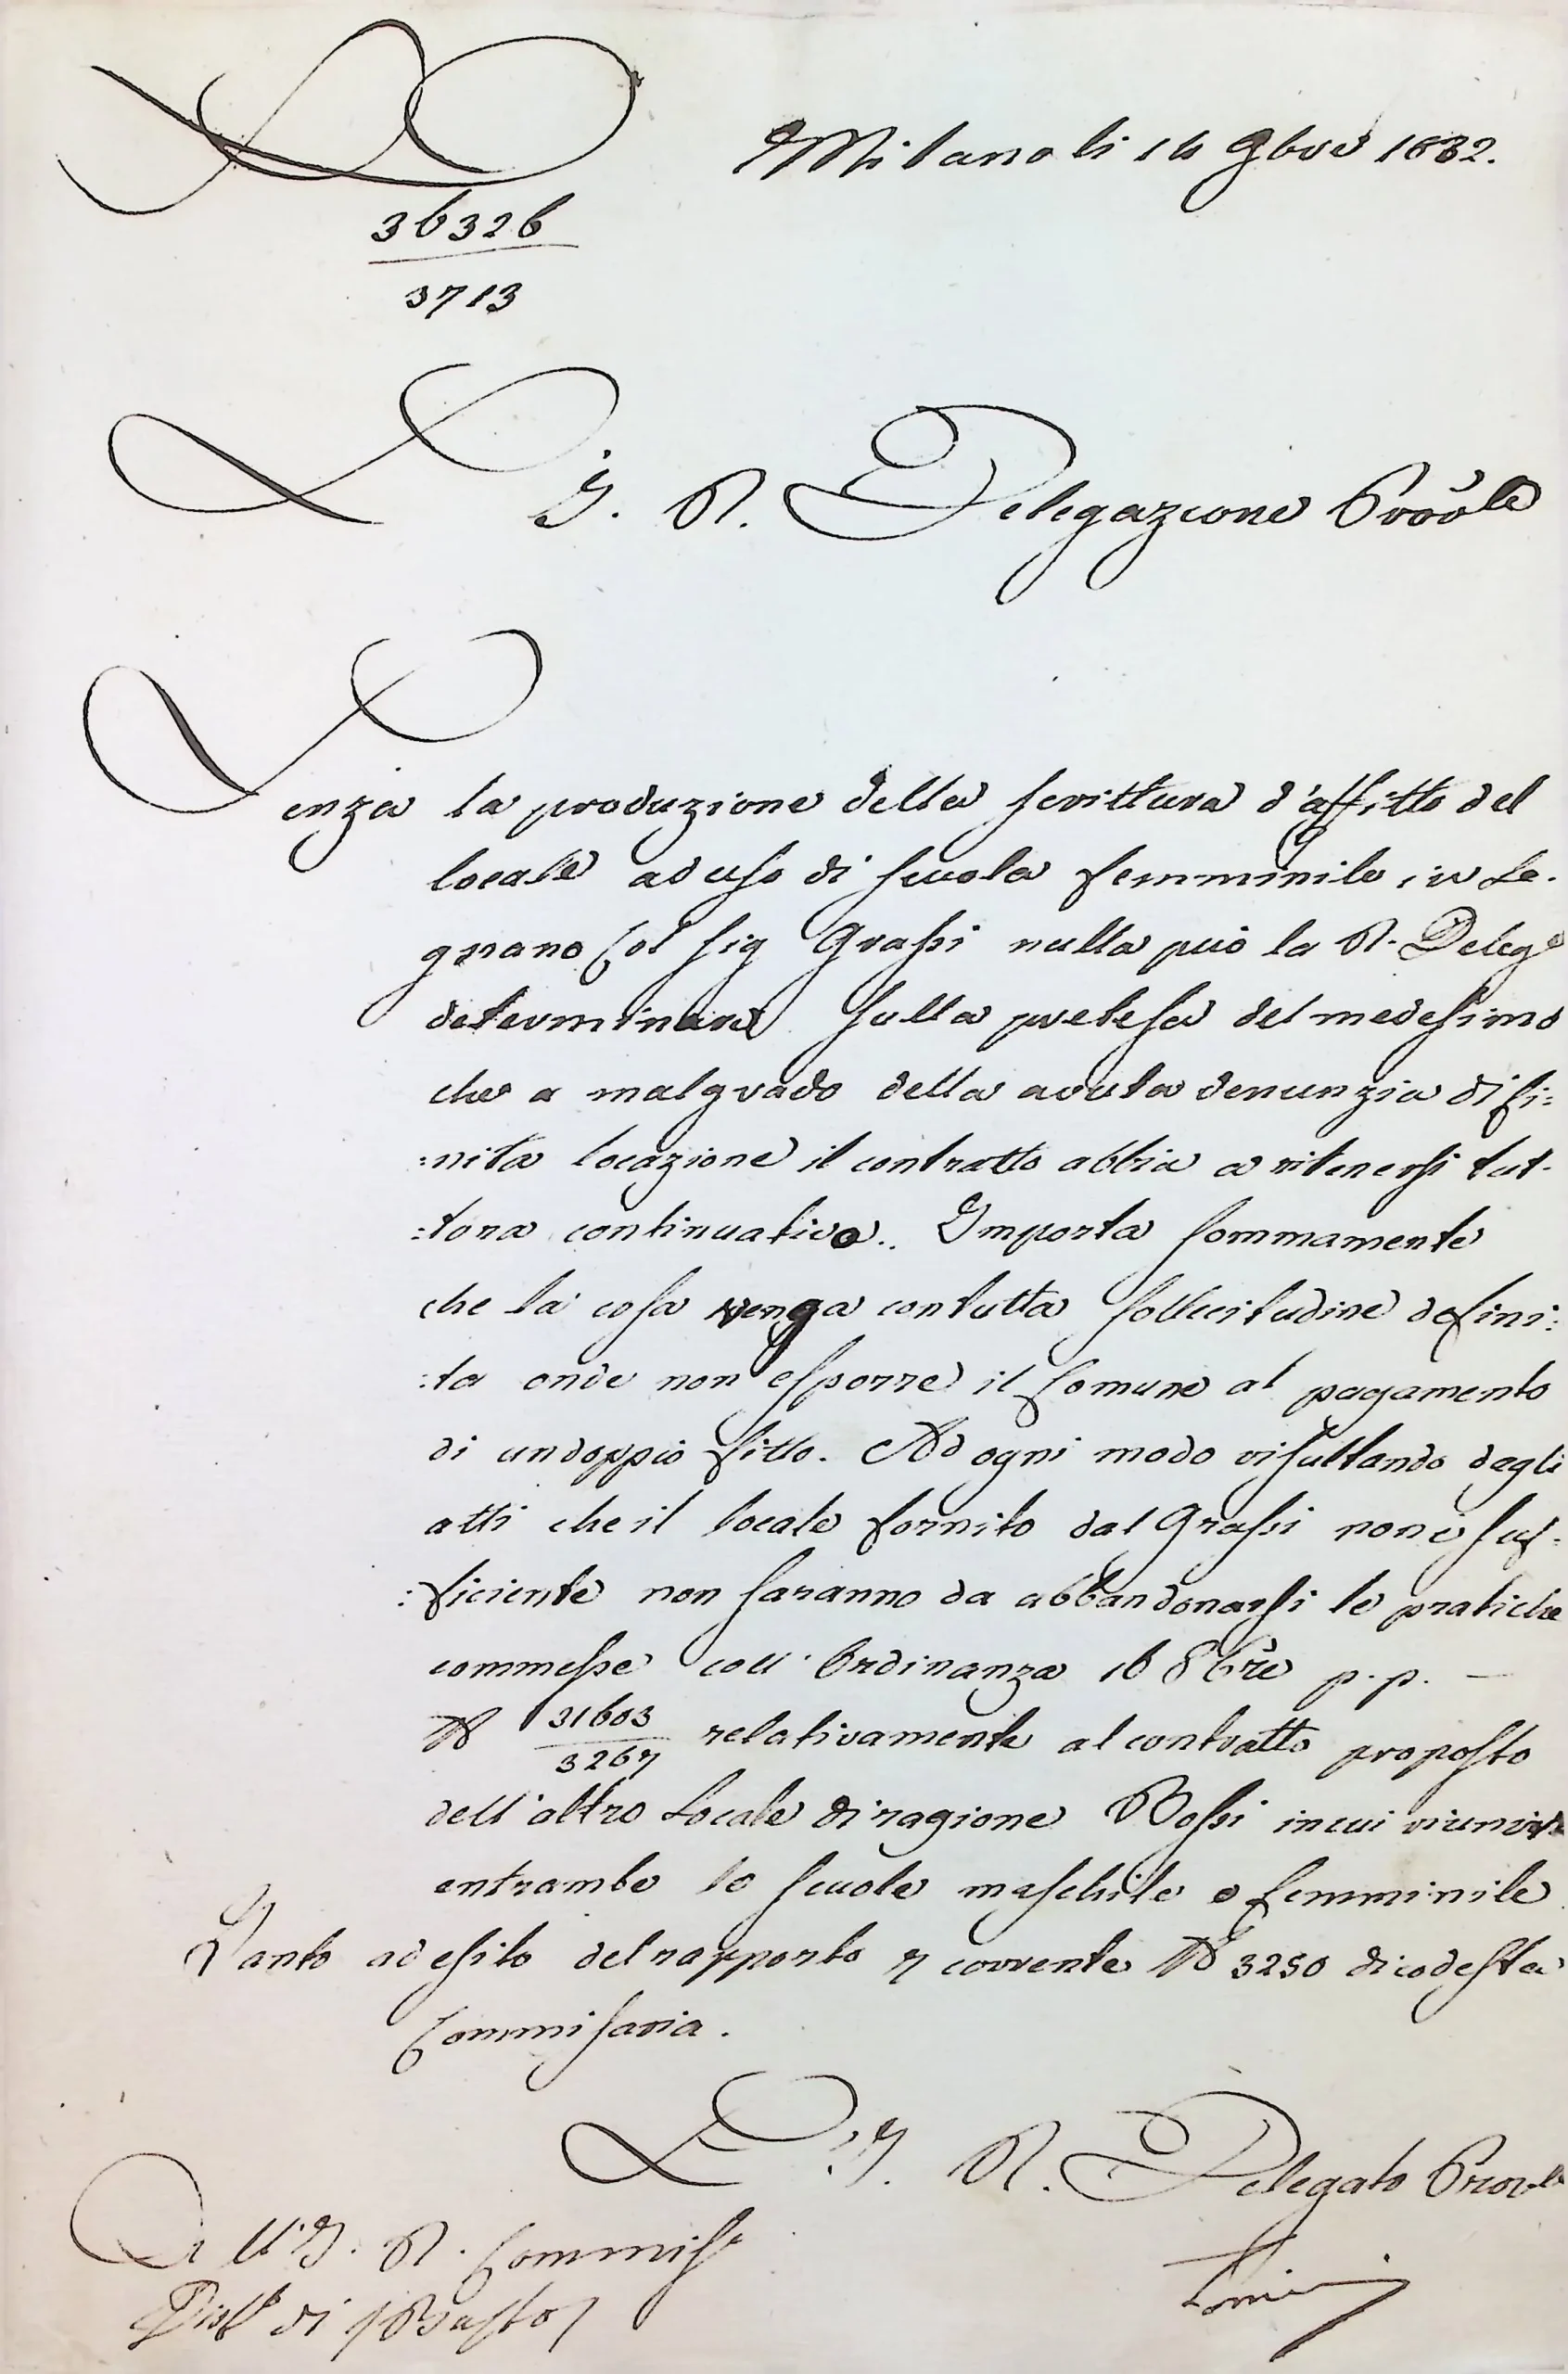 N
Milano li 14 9bre 1832.
36326
3713
L'I. R. Delegazione Provle
Senza la produzione della scrittura d'affitto del
locale ad uso di scuola femminile in Le-
gnano col sig Grassi nulla può la R. Delege
determinare sulla pretesa del medesimo
che a malgrado della avuta denunzia di fi=
=nita locazione il contratto abbia a ritenersi tut-
=tora continuativo. Importa sommamente
che la cosa venga con tutta sollecitudine defini=
=ta onde non esporre il Comune al pagamento
di un doppio fitto. Ad ogni modo risultando dagli
atti che il locale fornito dal Grassi non è suf-
=ficiente non saranno da abbandonarsi le pratiche
commesse coll'Ordinanza 16 8bre p.p. —
N 31603
3267 relativamente al contratto proposto
dell'altro Locale di ragione Bossi in cui riunire
entrambe le scuole maschile e femminile
Tanto ad esito del rapporto 7 corrente N 3250 di codesta
Commisaria.
L'I. R. Delegato Provle
All'I. R. Commisso
Distle di /Busto/